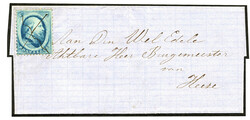 Aan Den Wel Edele
Achtbare Heer Burgemeester
van
Heese